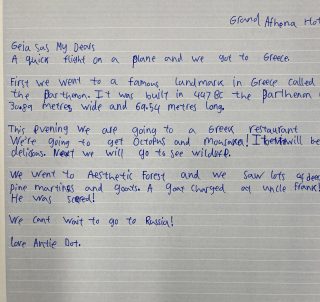 Grand Athena Hot
Geia Sas My Dears
A quick flight on a plane and we got to Greece
First we went to a famous landmark in Greece called
the parthenon. It was built in 447 BC the parthenon
30.89 metres wide and 69.54 metres long.
This evening we are going to a Greek restaurant
We're going to get Octopus and moussaka! It will be
delicous. Next we will go to see wildlife.
We went to Aesthetic Forest and we saw lots of deer
pine martings and goats. A goat charged at uncle Frank!
He was scared!
We cant wait to go to Russia!
love Antie Dot.